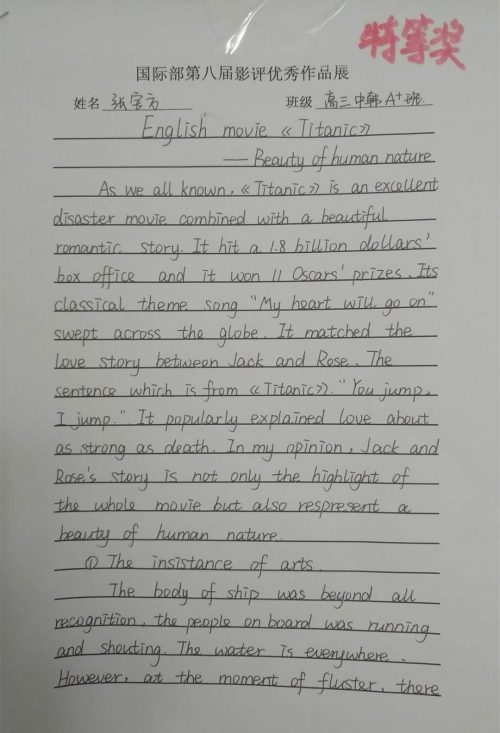 特等奖
国际部第八届影评优秀作品展
姓名 张宝方 班级 高三中韩A+班
English movie《Titanic》
— Beauty of human nature
As we all known,《Titanic》is an excellent
disaster movie combined with a beautiful
romantic story. It hit a 1.8 billion dollars'
box office and it won 11 Oscars' prizes. Its
classical theme song "My heart will go on"
swept across the globe. It matched the
love story between Jack and Rose. The
sentence which is from《Titanic》. "You jump,
I jump.". It popularly explained love about
as strong as death. In my opinion, Jack and
Rose's story is not only the highlight of
the whole movie but also respresent a
beauty of human nature.
① The insistance of arts.
The body of ship was beyond all
recognition, the people on board was running
and shouting. The water is everywhere.
However, at the moment of fluster, there